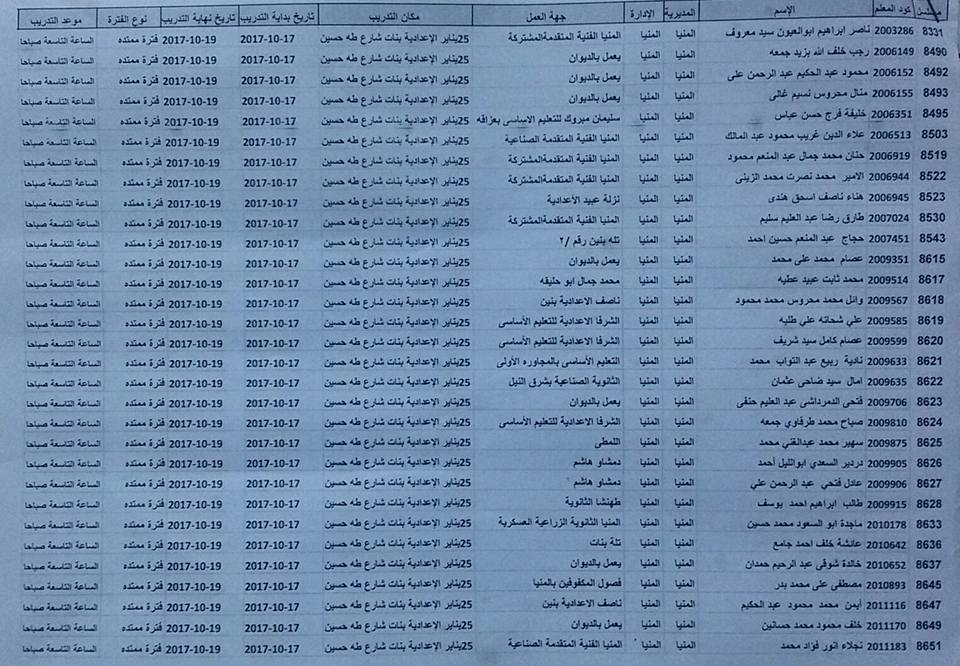 مسلسل كود المعلم الإسم المديرية الإدارة جهة العمل مكان التدريب تاريخ بداية التدريب تاريخ نهاية التدريب نوع الفترة موعد التدريب
8331 2003286 ناصر ابراهيم ابوالعيون سيد معروف المنيا المنيا المنيا الفنية المتقدمةالمشتركة 25يناير الإعدادية بنات شارع طه حسين 2017-10-17 2017-10-19 فترة ممتده الساعة التاسعة صباحا
8490 2006149 رجب خلف الله يزيد جمعه المنيا المنيا يعمل بالديوان 25يناير الإعدادية بنات شارع طه حسين 2017-10-17 2017-10-19 فترة ممتده الساعة التاسعة صباحا
8492 2006152 محمود عبد الحكيم عبد الرحمن على المنيا المنيا يعمل بالديوان 25يناير الإعدادية بنات شارع طه حسين 2017-10-17 2017-10-19 فترة ممتده الساعة التاسعة صباحا
8493 2006155 منال محروس نسيم غالى المنيا المنيا يعمل بالديوان 25يناير الإعدادية بنات شارع طه حسين 2017-10-17 2017-10-19 فترة ممتده الساعة التاسعة صباحا
8495 2006351 خليفة فرج حسن عباس المنيا المنيا سليمان مبروك للتعليم الاساسى بعزاقه 25يناير الإعدادية بنات شارع طه حسين 2017-10-17 2017-10-19 فترة ممتده الساعة التاسعة صباحا
8503 2006513 علاء الدين غريب محمود عبد المالك المنيا المنيا المنيا الفنية المتقدمة الصناعية 25يناير الإعدادية بنات شارع طه حسين 2017-10-17 2017-10-19 فترة ممتده الساعة التاسعة صباحا
8519 2006919 حنان محمد جمال عبد المنعم محمود المنيا المنيا المنيا الفنية المتقدمةالمشتركة 25يناير الإعدادية بنات شارع طه حسين 2017-10-17 2017-10-19 فترة ممتده الساعة التاسعة صباحا
8522 2006944 الامير محمد نصرت محمد الزينى المنيا المنيا المنيا الفنية المتقدمةالمشتركة 25يناير الإعدادية بنات شارع طه حسين 2017-10-17 2017-10-19 فترة ممتده الساعة التاسعة صباحا
8523 2006945 هناء ناصف اسحق هندى المنيا المنيا نزلة عبيد الأعدادية 25يناير الإعدادية بنات شارع طه حسين 2017-10-17 2017-10-19 فترة ممتده الساعة التاسعة صباحا
8530 2007024 طارق رضا عبد العليم سليم المنيا المنيا المنيا الفنية المتقدمةالمشتركة 25يناير الإعدادية بنات شارع طه حسين 2017-10-17 2017-10-19 فترة ممتده الساعة التاسعة صباحا
8543 2007451 حجاج عبد المنعم حسين احمد المنيا المنيا تله بنين رقم /٢ 25يناير الإعدادية بنات شارع طه حسين 2017-10-17 2017-10-19 فترة ممتده الساعة التاسعة صباحا
8615 2009351 عصام محمد على محمد المنيا المنيا يعمل بالديوان 25يناير الإعدادية بنات شارع طه حسين 2017-10-17 2017-10-19 فترة ممتده الساعة التاسعة صباحا
8617 2009514 محمد ثابت عبيد عطيه المنيا المنيا محمد جمال ابو حليقه 25يناير الإعدادية بنات شارع طه حسين 2017-10-17 2017-10-19 فترة ممتده الساعة التاسعة صباحا
8618 2009567 وائل محمد محروس محمد محمود المنيا المنيا ناصف الاعدادية بنين 25يناير الإعدادية بنات شارع طه حسين 2017-10-17 2017-10-19 فترة ممتده الساعة التاسعة صباحا
8619 2009585 علي شحاته علي طلبه المنيا المنيا الشرفا الاعدادية للتعليم الأساسى 25يناير الإعدادية بنات شارع طه حسين 2017-10-17 2017-10-19 فترة ممتده الساعة التاسعة صباحا
8620 2009599 عصام كامل سيد شريف المنيا المنيا الشرفا الاعدادية للتعليم الأساسى 25يناير الإعدادية بنات شارع طه حسين 2017-10-17 2017-10-19 فترة ممتده الساعة التاسعة صباحا
8621 2009633 نادية ربيع عبد التواب محمد المنيا المنيا التعليم الأساسى بالمجاوره الأولى 25يناير الإعدادية بنات شارع طه حسين 2017-10-17 2017-10-19 فترة ممتده الساعة التاسعة صباحا
8622 2009635 امال سيد ضاحى عثمان المنيا المنيا الثانوية الصناعية بشرق النيل 25يناير الإعدادية بنات شارع طه حسين 2017-10-17 2017-10-19 فترة ممتده الساعة التاسعة صباحا
8623 2009706 فتحى الدمرداشى عبد العليم حنفى المنيا المنيا يعمل بالديوان 25يناير الإعدادية بنات شارع طه حسين 2017-10-17 2017-10-19 فترة ممتده الساعة التاسعة صباحا
8624 2009810 صباح محمد طرفاوي جمعه المنيا المنيا الشرفا الاعدادية للتعليم الأساسى 25يناير الإعدادية بنات شارع طه حسين 2017-10-17 2017-10-19 فترة ممتده الساعة التاسعة صباحا
8625 2009875 سهير محمد عبدالغني محمد المنيا المنيا اللمطى 25يناير الإعدادية بنات شارع طه حسين 2017-10-17 2017-10-19 فترة ممتده الساعة التاسعة صباحا
8626 2009905 دردير السعدي ابوالليل أحمد المنيا المنيا دمشاو هاشم 25يناير الإعدادية بنات شارع طه حسين 2017-10-17 2017-10-19 فترة ممتده الساعة التاسعة صباحا
8627 2009906 عادل فتحي عبد الرحمن علي المنيا المنيا دمشاو هاشم 25يناير الإعدادية بنات شارع طه حسين 2017-10-17 2017-10-19 فترة ممتده الساعة التاسعة صباحا
8628 2009915 طالب ابراهيم احمد يوسف المنيا المنيا طهنشا الثانوية 25يناير الإعدادية بنات شارع طه حسين 2017-10-17 2017-10-19 فترة ممتده الساعة التاسعة صباحا
8633 2010178 ماجدة ابو السعود محمد حسين المنيا المنيا المنيا الثانوية الزراعية العسكرية 25يناير الإعدادية بنات شارع طه حسين 2017-10-17 2017-10-19 فترة ممتده الساعة التاسعة صباحا
8636 2010642 عائشة خلف احمد جامع المنيا المنيا تلة بنات 25يناير الإعدادية بنات شارع طه حسين 2017-10-17 2017-10-19 فترة ممتده الساعة التاسعة صباحا
8637 2010652 خالدة شوقى عبد الرحيم حمدان المنيا المنيا يعمل بالديوان 25يناير الإعدادية بنات شارع طه حسين 2017-10-17 2017-10-19 فترة ممتده الساعة التاسعة صباحا
8645 2010893 مصطفى على محمد بدر المنيا المنيا فصول المكفوفين بالمنيا 25يناير الإعدادية بنات شارع طه حسين 2017-10-17 2017-10-19 فترة ممتده الساعة التاسعة صباحا
8647 2011116 أيمن محمد محمود عبد الحكيم المنيا المنيا ناصف الاعدادية بنين 25يناير الإعدادية بنات شارع طه حسين 2017-10-17 2017-10-19 فترة ممتده الساعة التاسعة صباحا
8649 2011170 خلف محمود محمد حسانين المنيا المنيا يعمل بالديوان 25يناير الإعدادية بنات شارع طه حسين 2017-10-17 2017-10-19 فترة ممتده الساعة التاسعة صباحا
8651 2011183 نجلاء انور فؤاد محمد المنيا المنيا المنيا الفنية المتقدمة الصناعية 25يناير الإعدادية بنات شارع طه حسين 2017-10-17 2017-10-19 فترة ممتده الساعة التاسعة صباحا